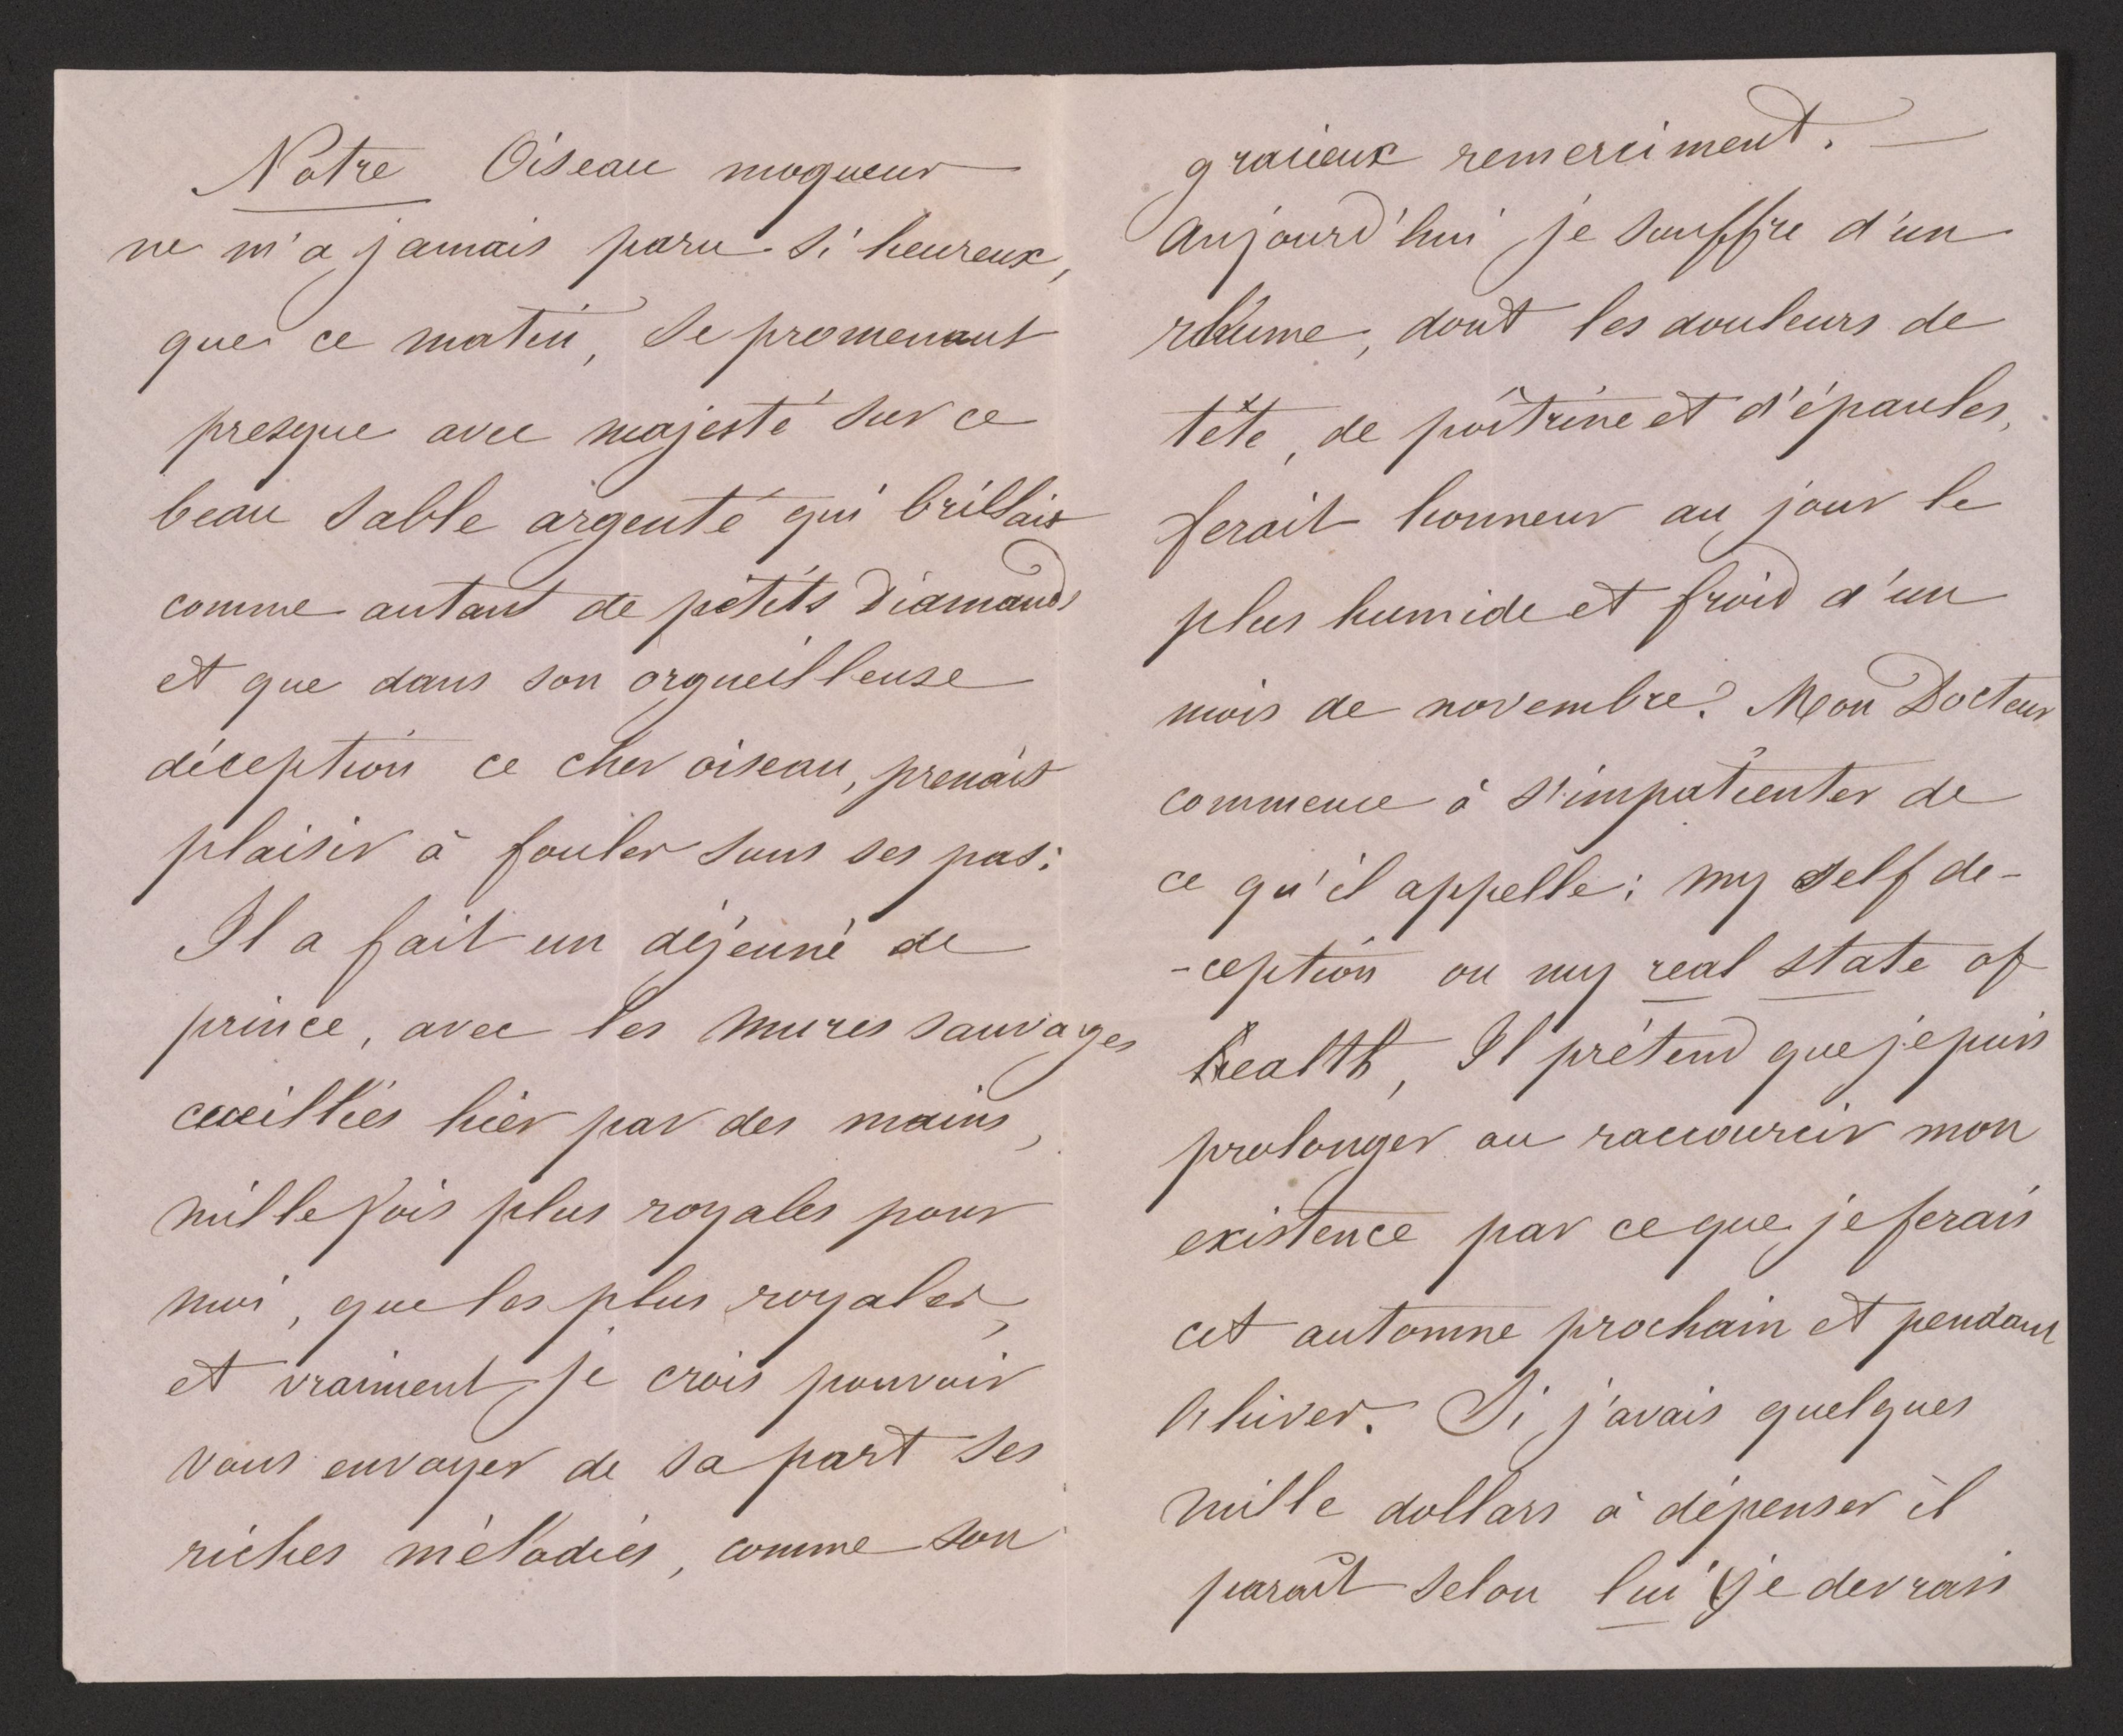 Notre Oiseau moqueur
ne m'a jamais paru si heureux,
que ce matin, se promenant
presque avec majesté sur ce
beau sable argenté qui brillait
comme autant de petits Diamands
et que dans son orgueilleuse
déception ce cher oiseau, prenait
plaisir à fouler sous ses pas:
Il a fait un déjeuné de
prince, avec les mures sauvages
cueillies hier par des mains,
mille fois plus royales pour
moi, que les plus royales,
et vraiment je crois pouvoir
vous envoyer de sa part ses
riches mélodies, comme son
gracieux remerciment. —
Aujourd'hui je souffre d'un
rhume, dont les douleurs de
tête, de poitrine et d'épaules,
ferait honneur au jour le
plus humide et froid d'un
mois de novembre. Mon Docteur
commence à s'impatienter de
ce qu'il appelle: my self de-
-ception on my real state of
health, Il prétend que je puis
prolonger ou raccourcir mon
existence par ce que je ferais
cet automne prochain et pendant
l'hiver. Si j'avais quelques
mille dollars à dépenser il
paraît selon lui je devrais